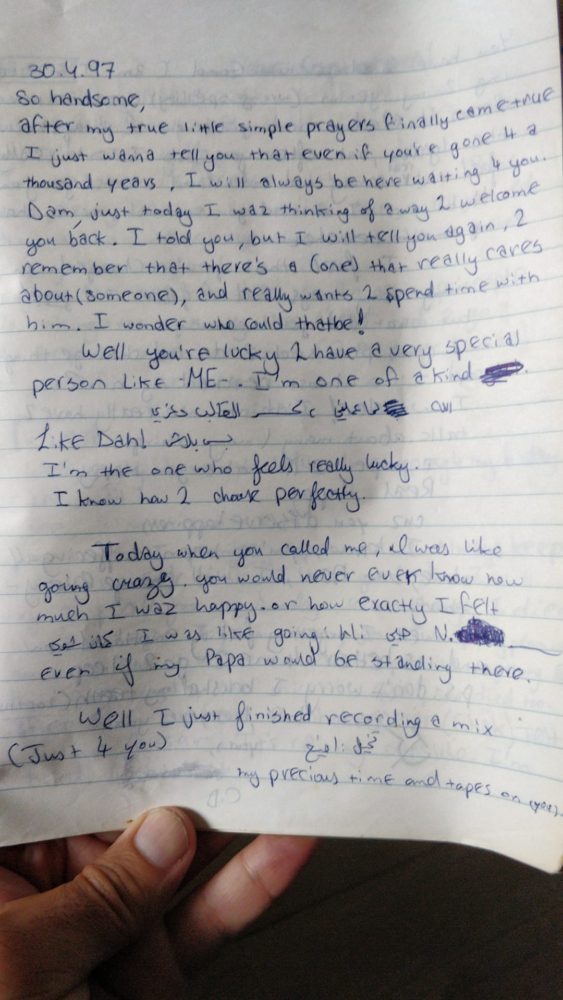 30.4.97
So handsome,
after my true little simple prayers finally came true
I just wanna tell you that even if you're gone 4 a
thousand years, I will always be here waiting 4 you.
Dam, just today I waz thinking of a way 2 welcome
you back. I told you, but I will tell you again, 2
remember that there's a (one) that really cares
about (someone), and really wants 2 spend time with
him. I wonder who could thatbe!
Well you're lucky 2 have a very special
person Like -ME-. I'm one of a kind
Like Dah!
I'm the one who feels really lucky.
I know how 2 choose perfectly.
Today when you called me, I was like
going crazy. you would never ever know how
much I waz happy. or how exactly I felt
I was like going: Hi N.
even if my Papa would be standing there.
Well I just finished recording a mix
(Just 4 you)
my precious time and tapes on (you).